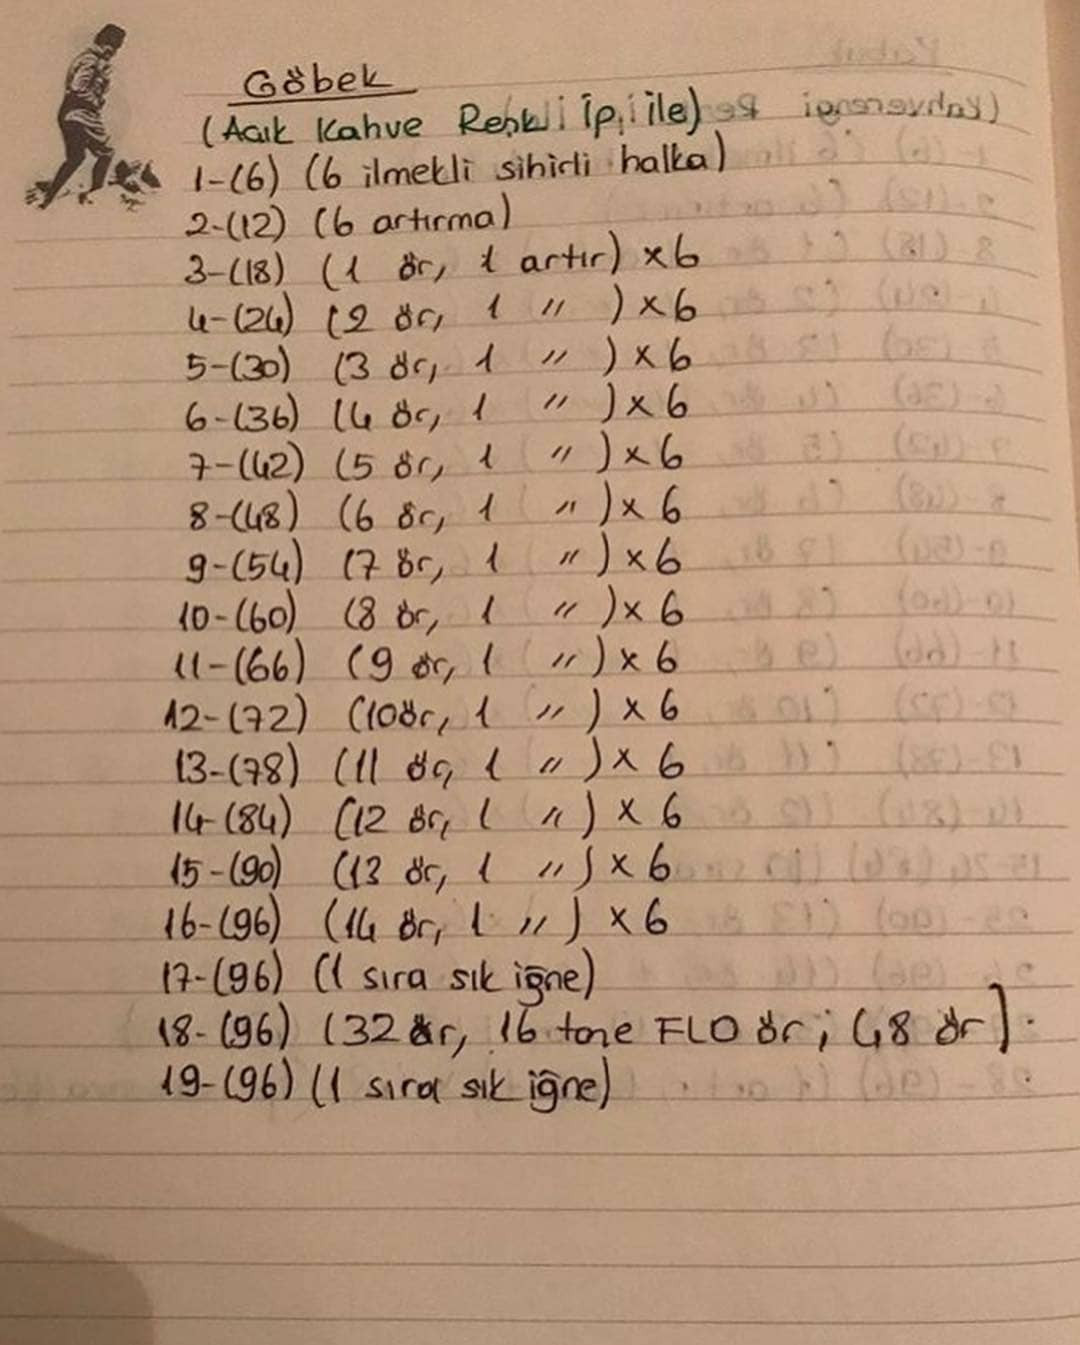 Göbek
(Açık Kahve Renkli İpi ile)
1-(6) (6 ilmekli sihirli halka)
2-(12) (6 artırma)
3-(18) (1 ör, 1 artır) x6
4-(24) (2 ör, 1 〃 ) x 6
5-(30) (3 ör, 1 〃 ) x 6
6-(36) (4 ör, 1 〃 ) x 6
7-(42) (5 ör, 1 〃 ) x 6
8-(48) (6 ör, 1 〃 ) x 6
9-(54) (7 ör, 1 〃 ) x 6
10-(60) (8 ör, 1 〃 ) x 6
11-(66) (9 ör, 1 〃 ) x 6
12-(72) (10ör, 1 〃 ) x 6
13-(78) (11 ör, 1 〃 ) x 6
14-(84) (12 ör, 1 〃 ) x 6
15-(90) (13 ör, 1 〃 ) x 6
16-(96) (14 ör, 1 〃 ) x 6
17-(96) (1 sıra sık iğne)
18-(96) (32 ör, 16 tane FLO ör; 48 ör).
19-(96) (1 sıra sık iğne)